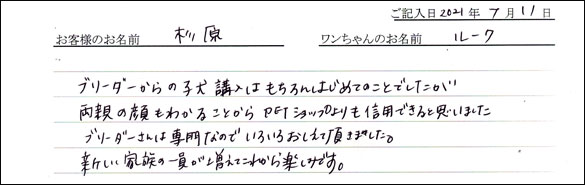 ご記入日 2021 年 7 月 11 日
お客様のお名前 杉原 ワンちゃんのお名前 ルーク
ブリーダーからの子犬講入はもちろんはじめてのことでしたが
両親の顔もわかることからPETショップよりも信用できると思いました
ブリーダーさんは専門なのでいろいろおしえて頂きました。
新しい家族の一員が増えてこれから楽しみです。